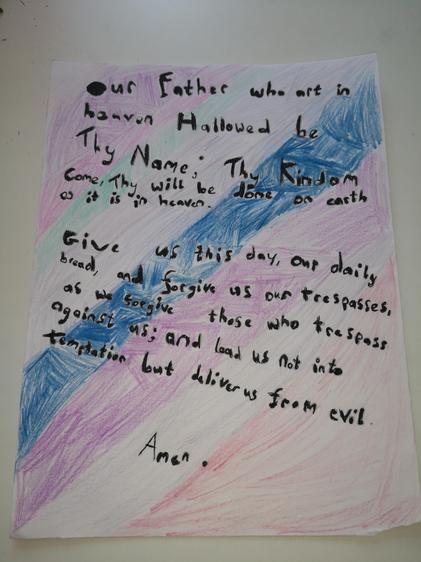 Our Father who art in
heaven Hallowed be
Thy Name; Thy Kindom
Come, Thy will be done on earth
as it is in heaven.
Give us this day, our daily
bread, and forgive us our trespasses,
as we forgive those who trespass
against us; and lead us not into
temptation but deliver us from evil.
Amen.